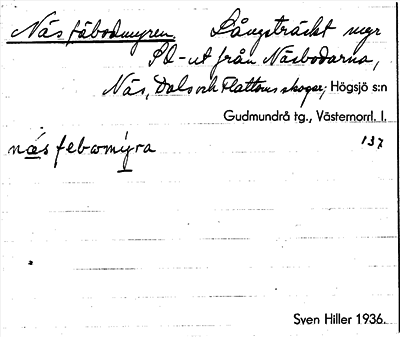 Näs fäbodmyren Långsträckt myr
SO-ut från Näsbodarna,
Näs, Dals och Plattons skogar, Högsjö s:n
Gudmundrå tg., Västernorrl. l.
næs febωmýra 137
Sven Hiller 1936.